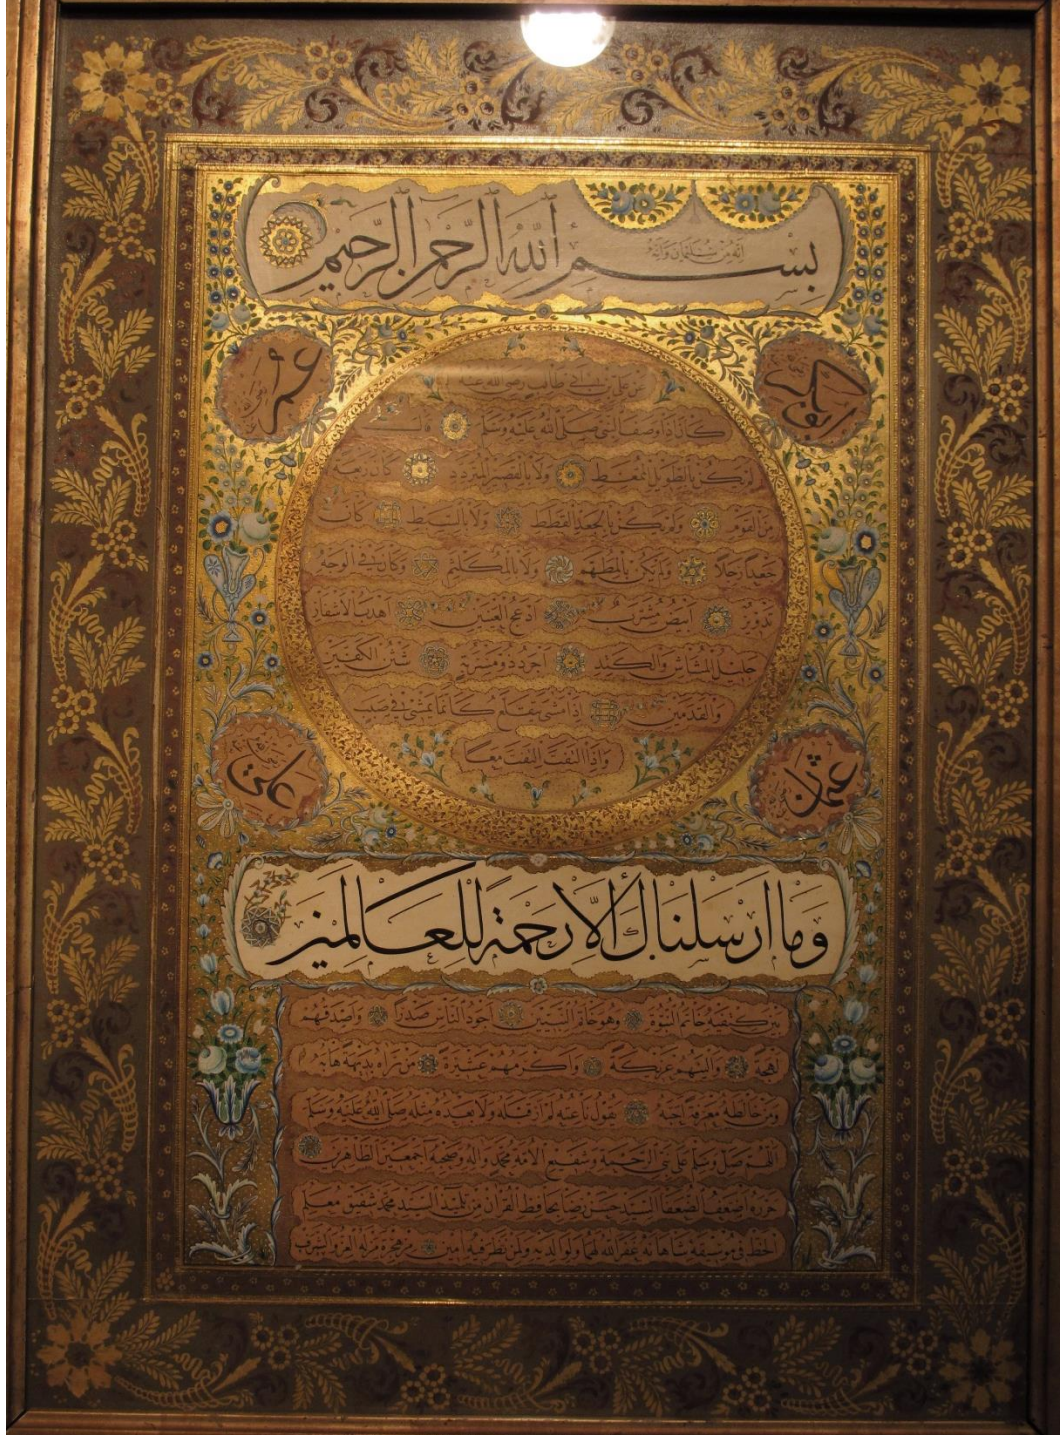 بِسْمِ اللهِ الرَّحْمٰنِ الرَّحِيمِ
إنه من سليمان وإنه
أبو بكر
عمر
عن علي بن أبي طالب رضي الله عنه
كان إذا وصف النبي صلى الله عليه وسلم قال
لم يكن بالطويل الممغط ولا بالقصير المتردد كان ربعة
من القوم ولم يكن بالجعد القطط ولا بالسبط كان
جعدا رجلا ولم يكن بالمطهم ولا بالمكلثم وكان في الوجه
تدوير أبيض مشرب أدعج العينين أهدب الأشفار
جليل المشاش والكتد أجرد ذو مسربة شثن الكفين
والقدمين إذا مشى تقلع كأنما يمشي في صبب
وإذا التفت التفت معا
عثمان
علي
وما أرسلناك إلا رحمة للعالمين
بين كتفيه خاتم النبوة وهو خاتم النبيين أجود الناس صدرا وأصدقهم
لهجة وألينهم عريكة وأكرمهم عشيرة من رآه بديهة هابه
ومن خالطه معرفة أحبه يقول ناعته لم أر قبله ولا بعده مثله صلى الله عليه وسلم
اللهم صل وسلم على نبي الرحمة وشفيع الأمة محمد وآله وصحبه أجمعين الطاهرين
حرره أضعف الضعفا السيد حسن رضا حافظ القرآن من تلميذ السيد محمد شفيق معلم
الخط في موسيقه شاهانه غفر الله لهما ولوالديه ولمن نظر فيه آمين من هجرة من له العز والشرف